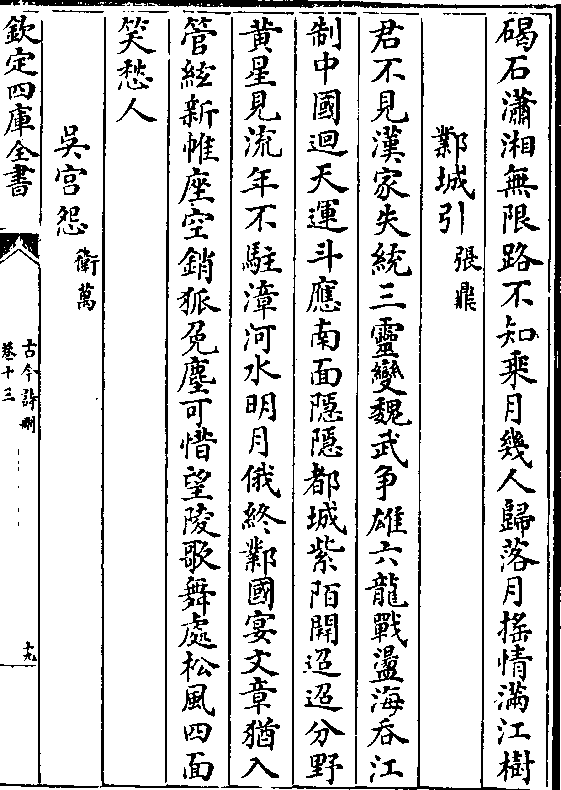 碣石瀟湘無限路不知乗月幾人歸落月揺情滿江樹
鄴城引張鼎
君不見漢家失統三靈變魏武争雄六龍戰盪海吞江
制中國迴天運斗應南面隱隱都城紫陌開迢迢分野
黄星見流年不駐漳河水明月俄終鄴國宴文章猶入
管絃新帷座空銷狐兔塵可惜望陵歌舞處松風四面
笑愁人
吳宫怨衛萬
欽定四庫全書
古今詩刪
卷十三
十九